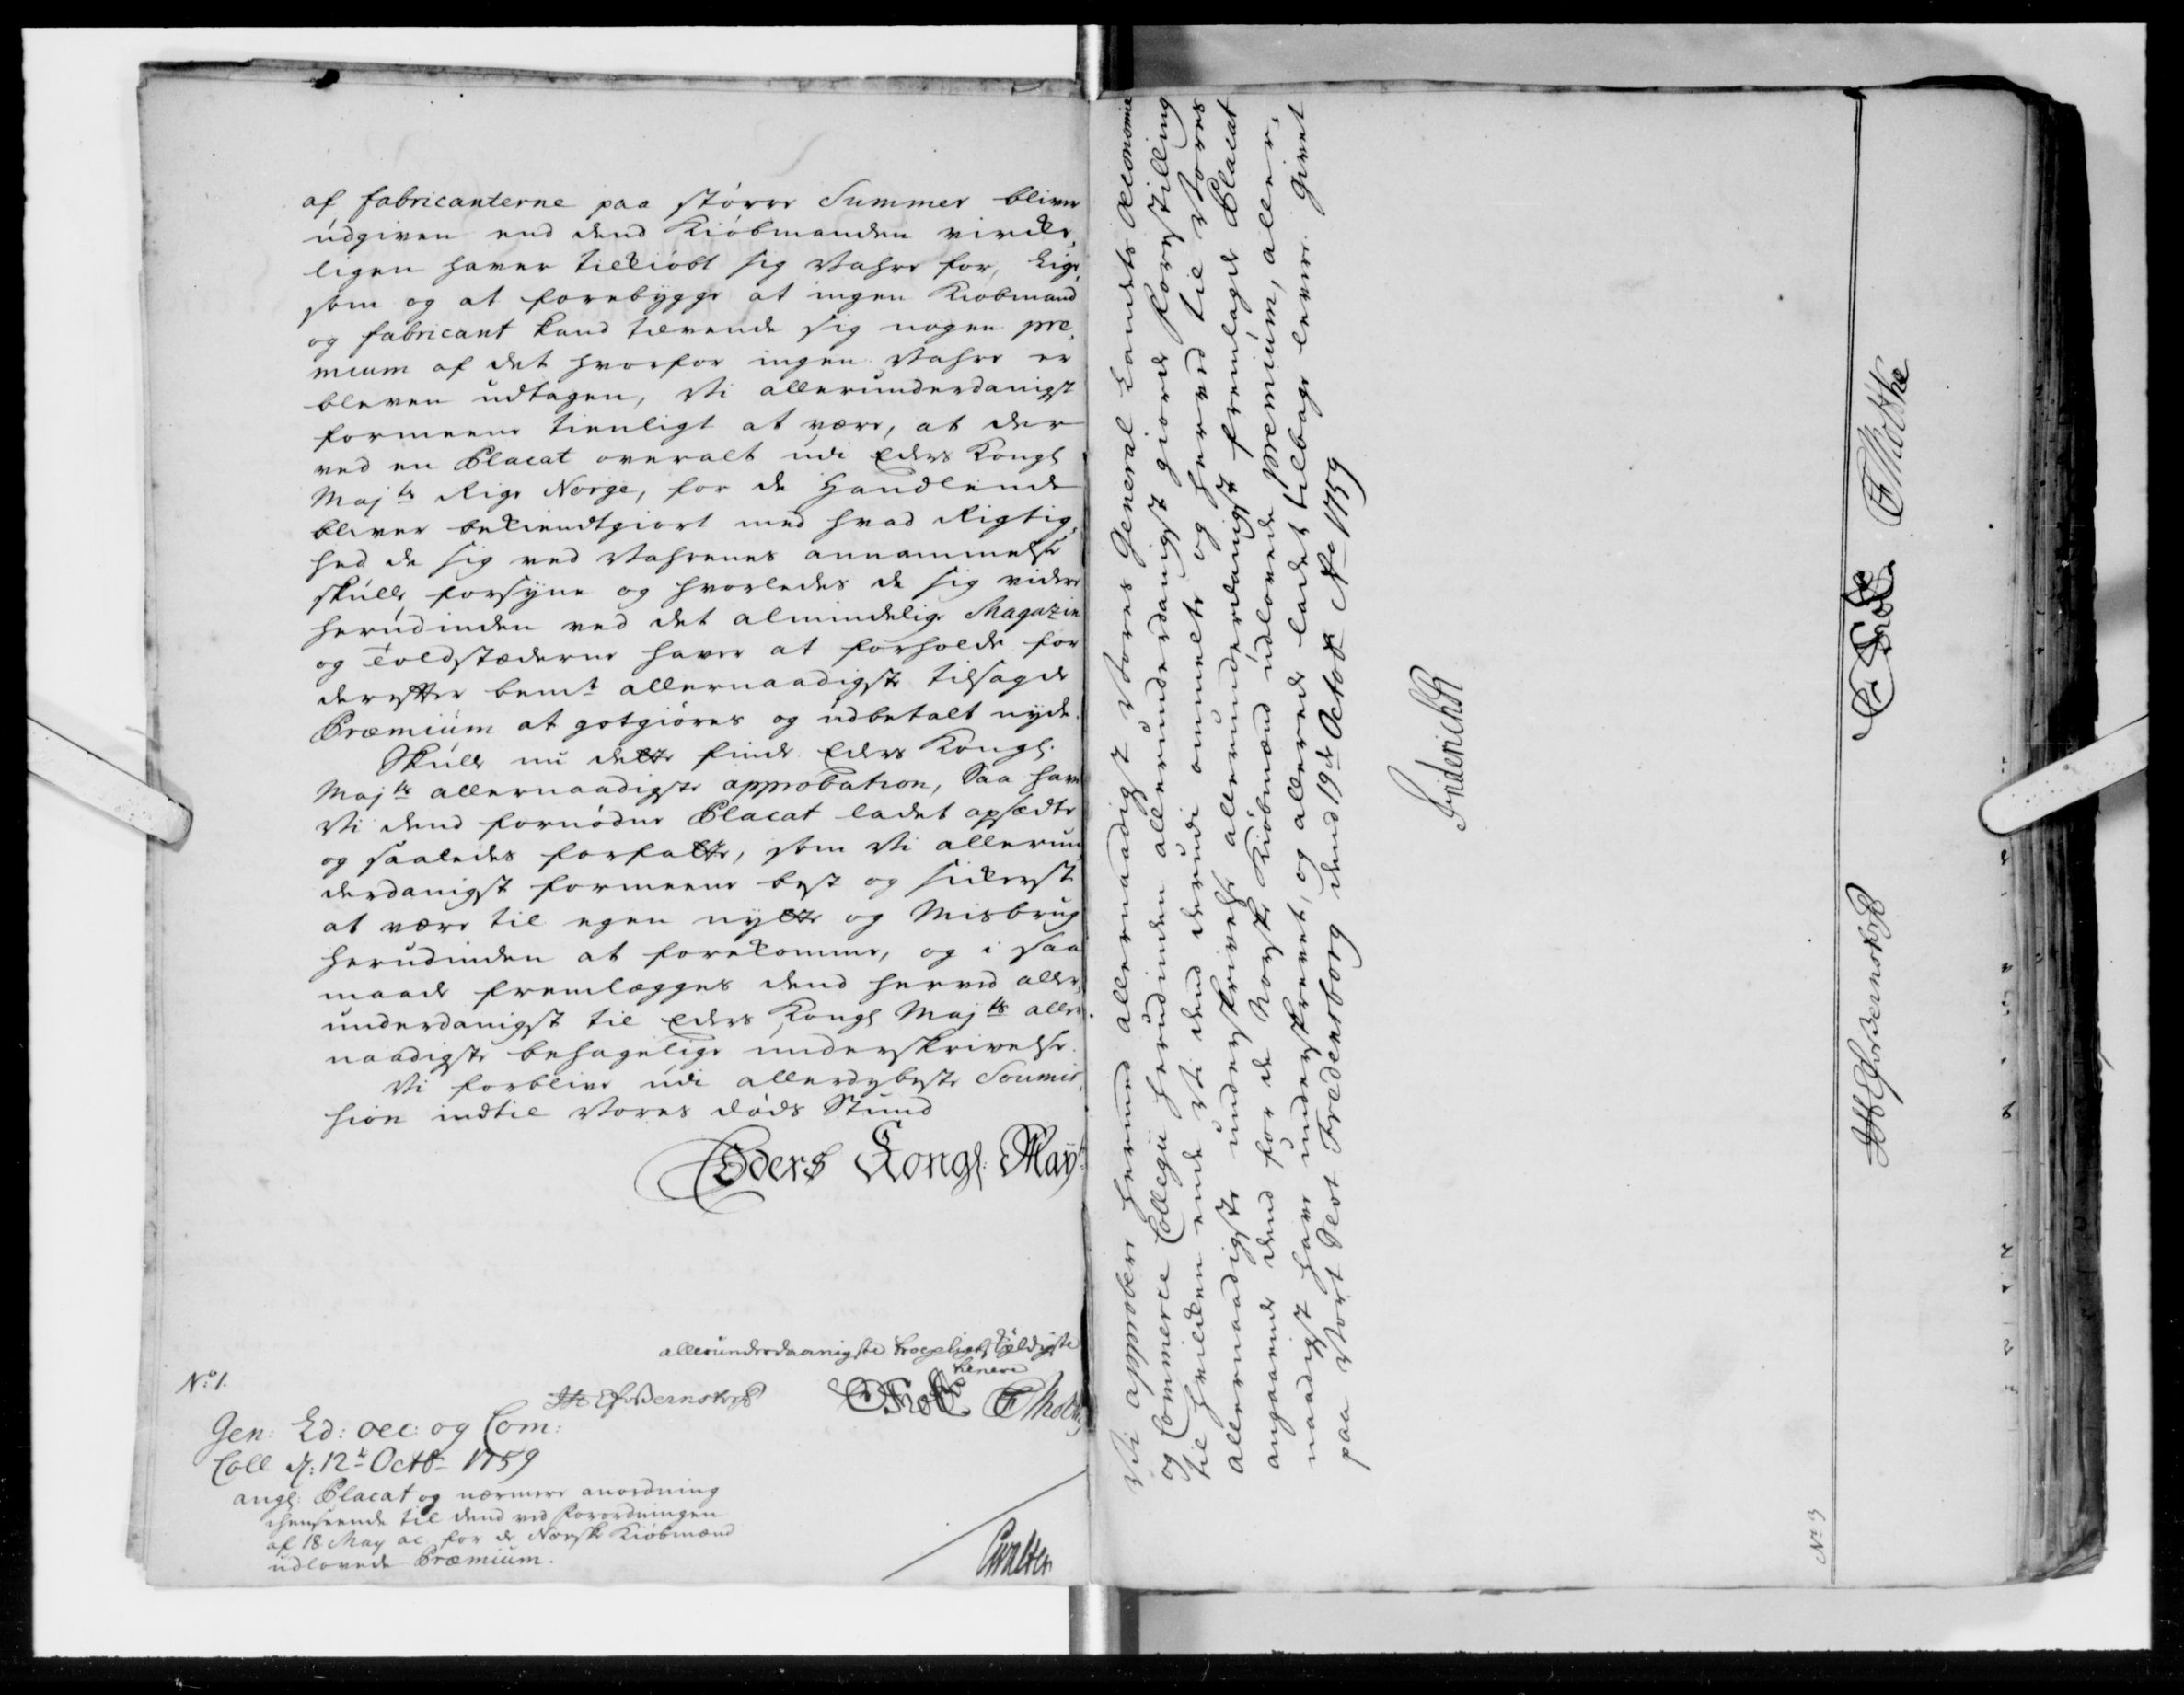 af fabricanterne paa större Summer bliver
udgiven end dend Kiöbmanden virke,
ligen haver tilkiöbt sig Vahre for, Lige,
som og at forebygge at ingen Kiöbmand
og fabricant kand tilvende sig nogen præ,
mium af det hvorfor ingen Vahre er
bleven udtagen, Vi allerunderdanigst
formeene tienligt at være, at der
ved en Placat overalt udi Eders Kongl
Majts Rige Norge, for de Handlende
bliver bekiendtgiort med hvad Rigtig,
hed de sig ved Vahrenes annammelse
skulle forsyne og hvorledes de sig videre
herudinden ved det almindelige Magazin
og Toldstæderne haver at forholde for
derefter bemte allernaadigste tilsagde
Præmium at godtgiöres og udbetalt nyde.
Skulle nu dette finde Eders Kongl.
Majts allernaadigste approbation, Saa have
Vi dend fornödne Placat ladet opsædte
og saaledes forfatte, som Vi allerun,
derdanigst formeene best og sikkerst
at være til egen nytte og Misbrug
herudinden at forekomme, og i saa
maade fremlægges dend herved aller,
underdanigst til Eders Kongl Majts aller,
naadigste behagelige underskrivelse.
Vi forblive udi allerdybeste Soumis,
sion indtil Vores döds Stund
Eders Kongl: May:
allerunderdaanigste troepligt skyldigste
tienere
JHEvBernstorff OThott CFMoltke
No: 1.
Gen: Ld: oec: og Com:
Coll d: 12t Octb 1759
angl: Placat og nærmere anordning
henseende til dend ved Forordningen
af 18 May ac for de Norske Kiöbmænd
udlovede Præmium.
Vi approbere hermed allernaadigst Vores General Landets Oeconomie
og Commerce Collegii herudinden allerunderdanigst giorde Forestilling
til hvilken ende Vi dend derudi ommelte og herved til Vores
allernaadigste underskrivelse allerunderdanigst fremlagde Placat
angaaende dend for de Norske Kiöbmænd udlovede Præmium, aller,
naadigst have underskrevet, og allerede ladet tilbage levere. Givet
paa Vort Slot Fredensborg dend 19de Octob Ao 1759
Friderich R
JHEvBernstorff OThott CFMoltke
No 3